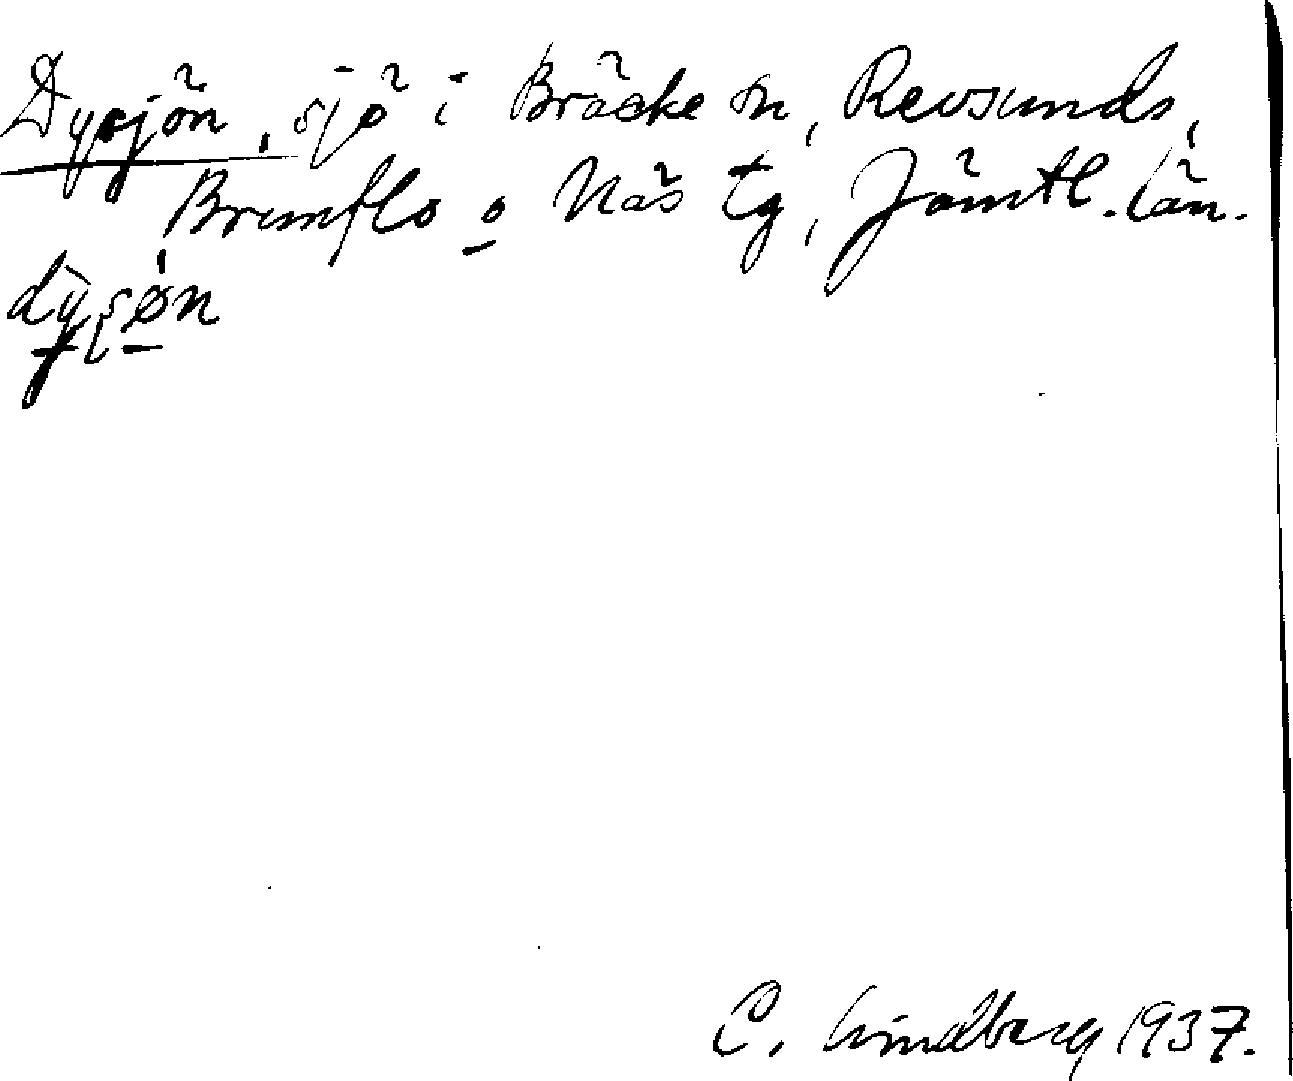 Dysjön, sjö i Bräcke sn, Revsunds,
Brunflo o Näs tg, Jämtl. län.
dỳsøn
C. Lindberg 1937.